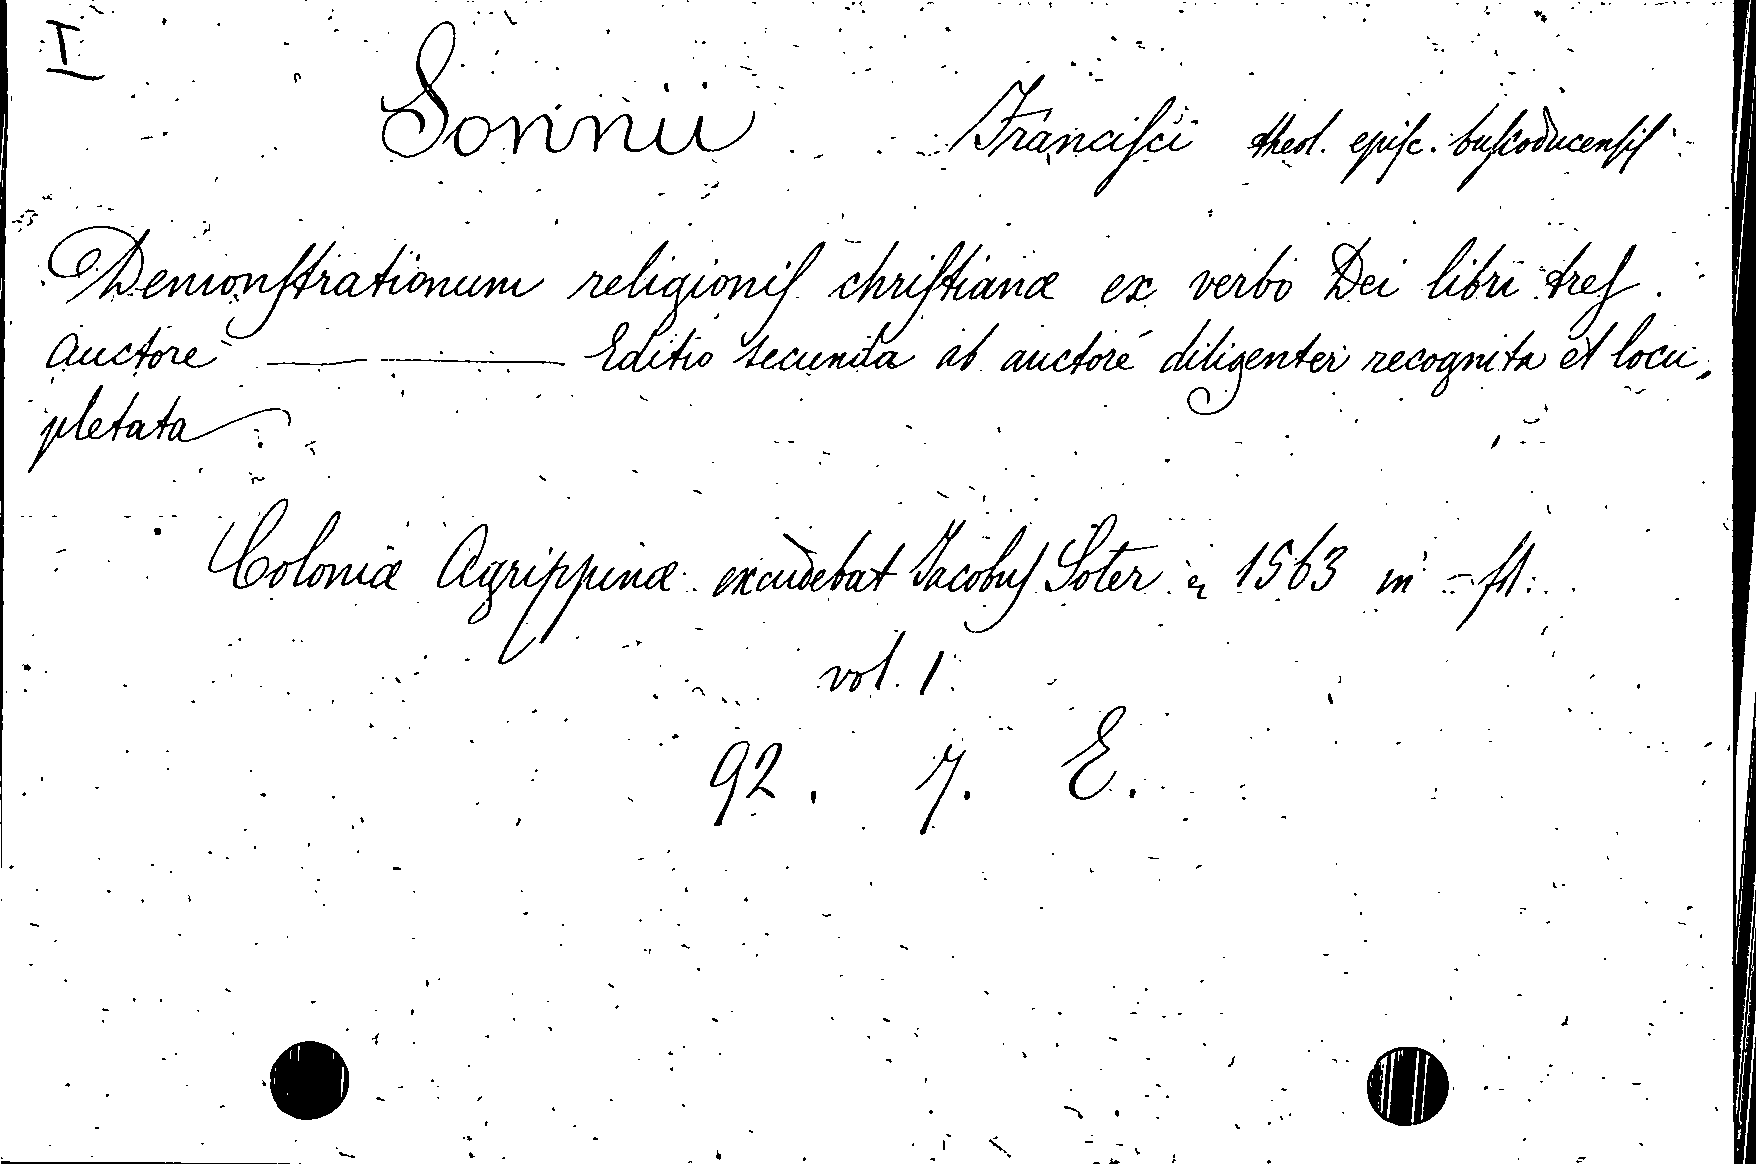 I
Sonnii Francisci theol. episc. buscoducensis
Demonstrationum religionis christianæ ex verbo Dei libri tres.
Auctore ——— Editio secunda ab auctore diligenter recognita et locu,
pletata
Coloniæ Agrippinæ excudebat Jacobus Soter 1563 in - ft:
vol. 1.
92. 7. E.